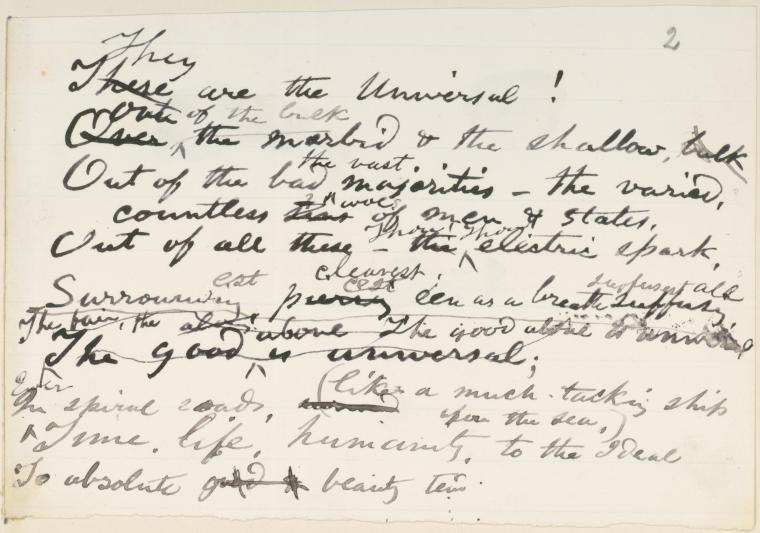 2
They
These are the Universal!
Out of the bulk
Over, the morbid & the shallow, bulk
the vast
Out of the bad majorities – the varied,
countless of men & states,
Out of all these – electric spark,
est clearest, suffusest all
Surrounding, een as a breath suffusing
The the above The good
The good is universal;
In spiral roads, (like a much-tacking ship
upon the sea,)
Time, life, humanity, to the Ideal
To absolute good & beauty